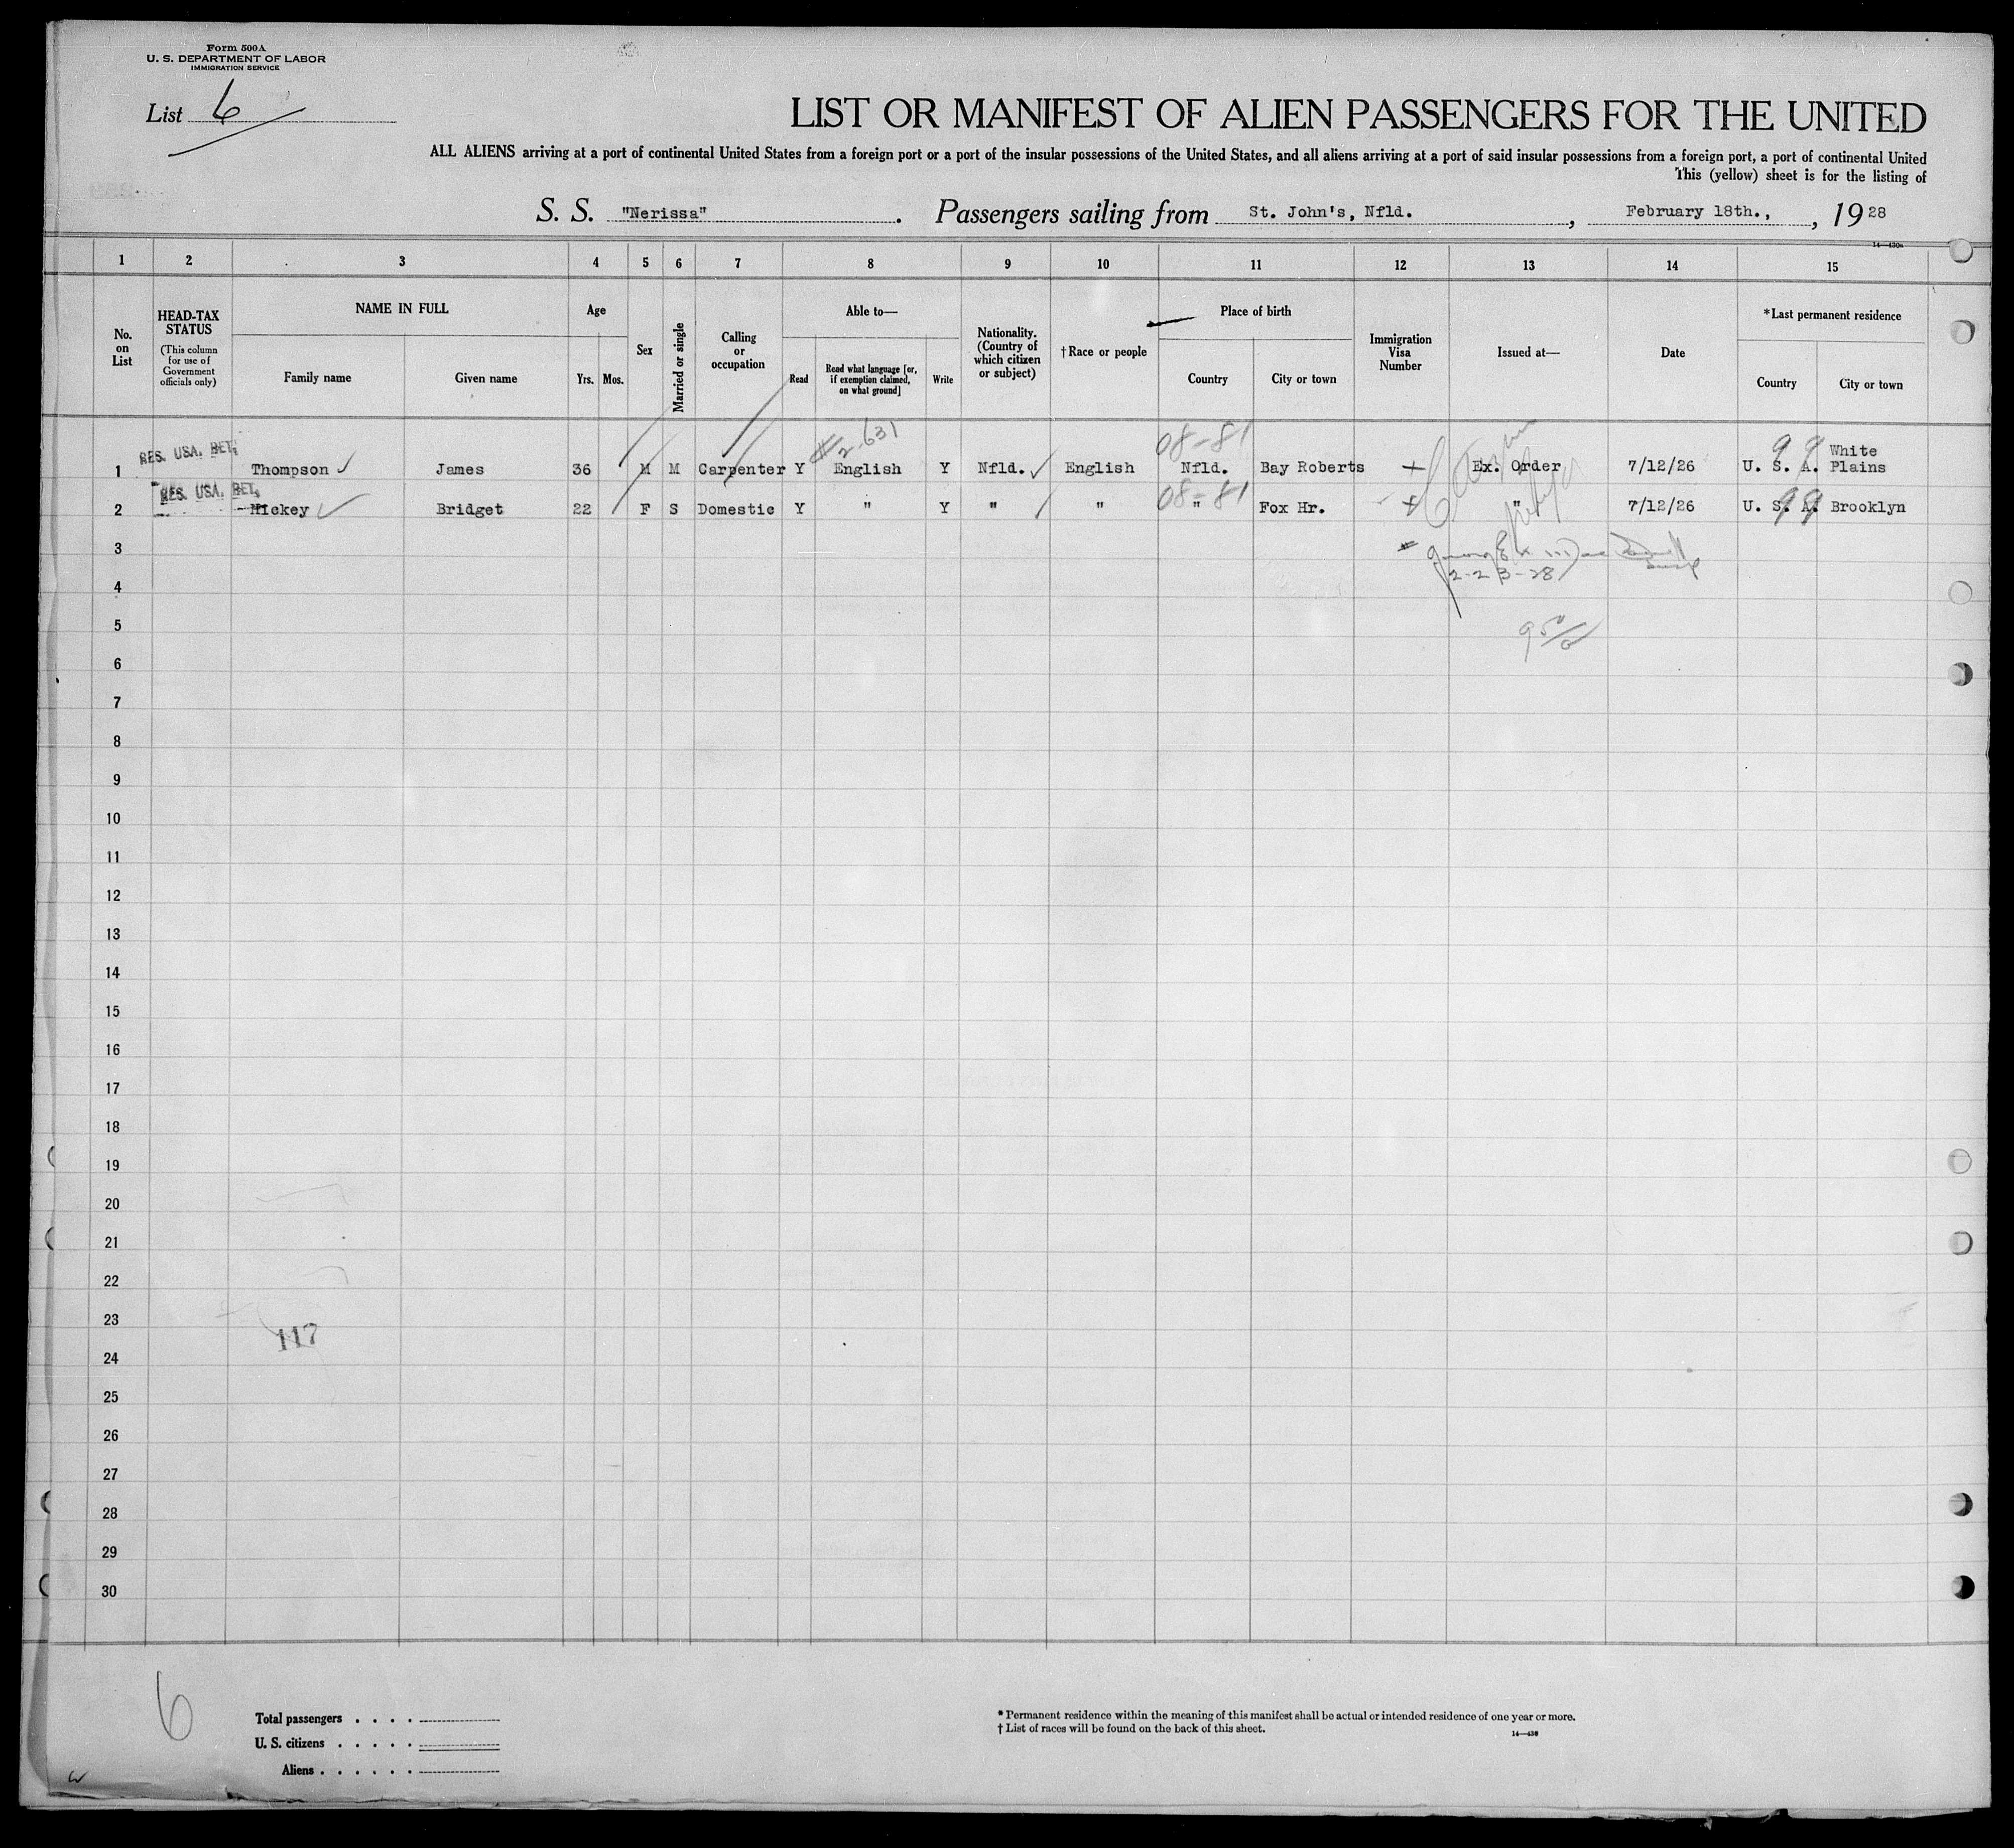 Form 500A
U. S. DEPARTMENT OF LABOR
IMMIGRATION SERVICE
List 6
LIST OR MANIFEST OF ALIEN PASSENGERS FOR THE UNITED
ALL ALIENS arriving at a port of continental United States from a foreign port or a port of the insular possessions of the United States, and all aliens arriving at a port of said insular possessions from a foreign port, a port of continental United
This (yellow) sheet is for the listing of
S. S. "Nerissa" . Passengers sailing from St. John's, Nfld. , February 18th., , 1928
1 2 3 4 5 6 7 8 9 10 11 12 13 14 15
No. on List
HEAD-TAX STATUS
(This column for use of Government officials only)
NAME IN FULL
Family name
Given name
Age
Yrs. Mos.
Sex
Married or single
Calling or occupation
Able to—
Read
Read what language [or, if exemption claimed, on what ground]
Write
Nationality. (Country of which citizen or subject)
†Race or people
Place of birth
Country
City or town
Immigration Visa Number
Issued at—
Date
*Last permanent residence
Country
City or town
#2-631
08-81
99
1 RES. USA. BET. Thompson James 36 M M Carpenter Y English Y Nfld. English Nfld. Bay Roberts + Ex. Order 7/12/26 U. S. A. White Plains
08-81
99
2 RES. USA. BET. Hickey Bridget 22 F S Domestic Y " Y " " " Fox Hr. + " 7/12/26 U. S. A. Brooklyn
3
2-23-28
4
5
6
7
8
9
10
11
12
13
14
15
16
17
18
19
20
21
22
23
117
24
25
26
27
28
29
30
6
Total passengers . . . .
U. S. citizens . . . . .
Aliens . . . . . .
* Permanent residence within the meaning of this manifest shall be actual or intended residence of one year or more.
† List of races will be found on the back of this sheet.